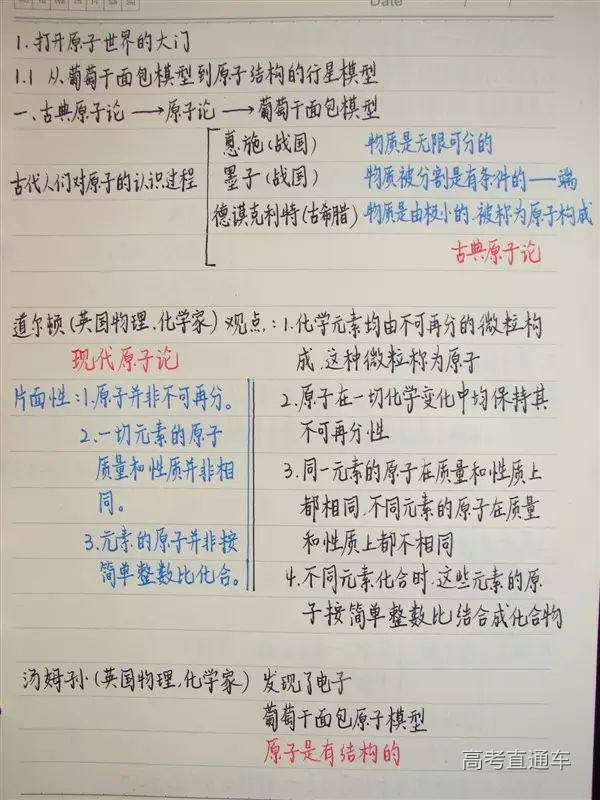 Date / /
1.打开原子世界的大门
1.1 从葡萄干面包模型到原子结构的行星模型
一、古典原子论→原子论→葡萄干面包模型
古代人们对原子的认识过程
惠施(战国) 物质是无限可分的
墨子(战国) 物质被分割是有条件的——端
德谟克利特(古希腊) 物质是由极小的.被称为原子构成
古典原子论
道尔顿(英国物理.化学家)观点.:1.化学元素均由不可再分的微粒构
成.这种微粒称为原子
2.原子在一切化学变化中均保持其
不可再分性
3.同一元素的原子在质量和性质上
都相同.不同元素的原子在质量
和性质上都不相同
4.不同元素化合时.这些元素的原
子按简单整数比结合成化合物
现代原子论
片面性:1.原子并非不可再分。
2.一切元素的原子
质量和性质并非相
同。
3.元素的原子并非按
简单整数比化合。
汤姆孙(英国物理.化学家) 发现了电子
葡萄干面包原子模型
原子是有结构的
高考直通车